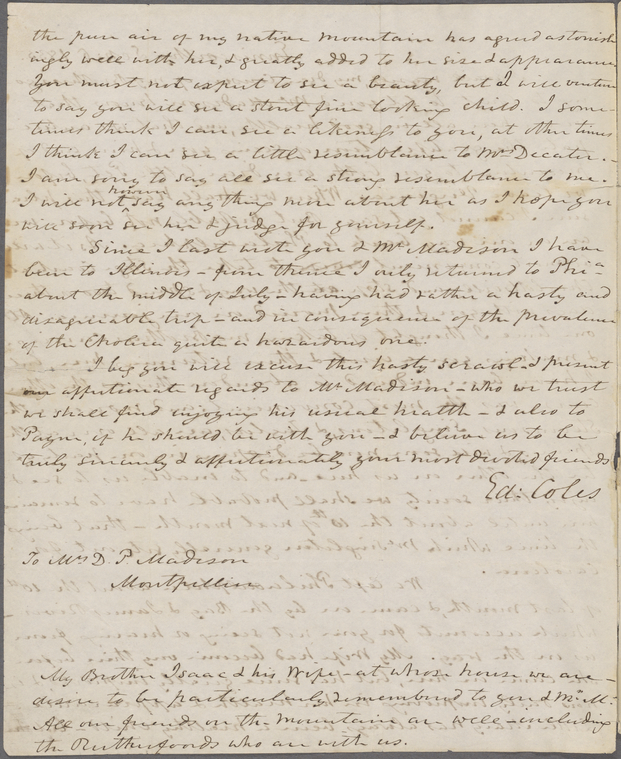 the pure air of my native mountain has agreed astonish
ingly well with her, & greatly added to her size & appearance
You must not expect to see a beauty, but I will venture
to say you will see a stout fine looking child. I some-
times think I can see a likeness to you, at other times
I think I can see a little resemblance to Mrs Decatur.-
I am sorry to say all see a strong resemblance to me.-
I will not however say any thing more about her as I hope you
will soon see her & judge for yourself.
Since I last wrote you & Mr Madison I have
been to Illinois - from thence I only returned to Phia-
about the middle of July - having had rather a hasty and
disagreeable trip - and in consequence of the prevalence
of the Cholera quite a hazardous one.
I beg you will excuse this hasty scrawl - & present
our affectionate regards to Mr Madison - who we trust
we shall find enjoying his usual health - & also to
Payne, if he should be with you - & believe us to be
truly sincerely & affectionately your most devoted friends
Ed: Coles
To Mrs D. P. Madison
Montpellier
My Brother Isaac & his Wife - at whose house we are -
desire to be particularly remembered to you & Mr M.
All our friends on the mountain are well - including
the Rutherfoords who are with us.